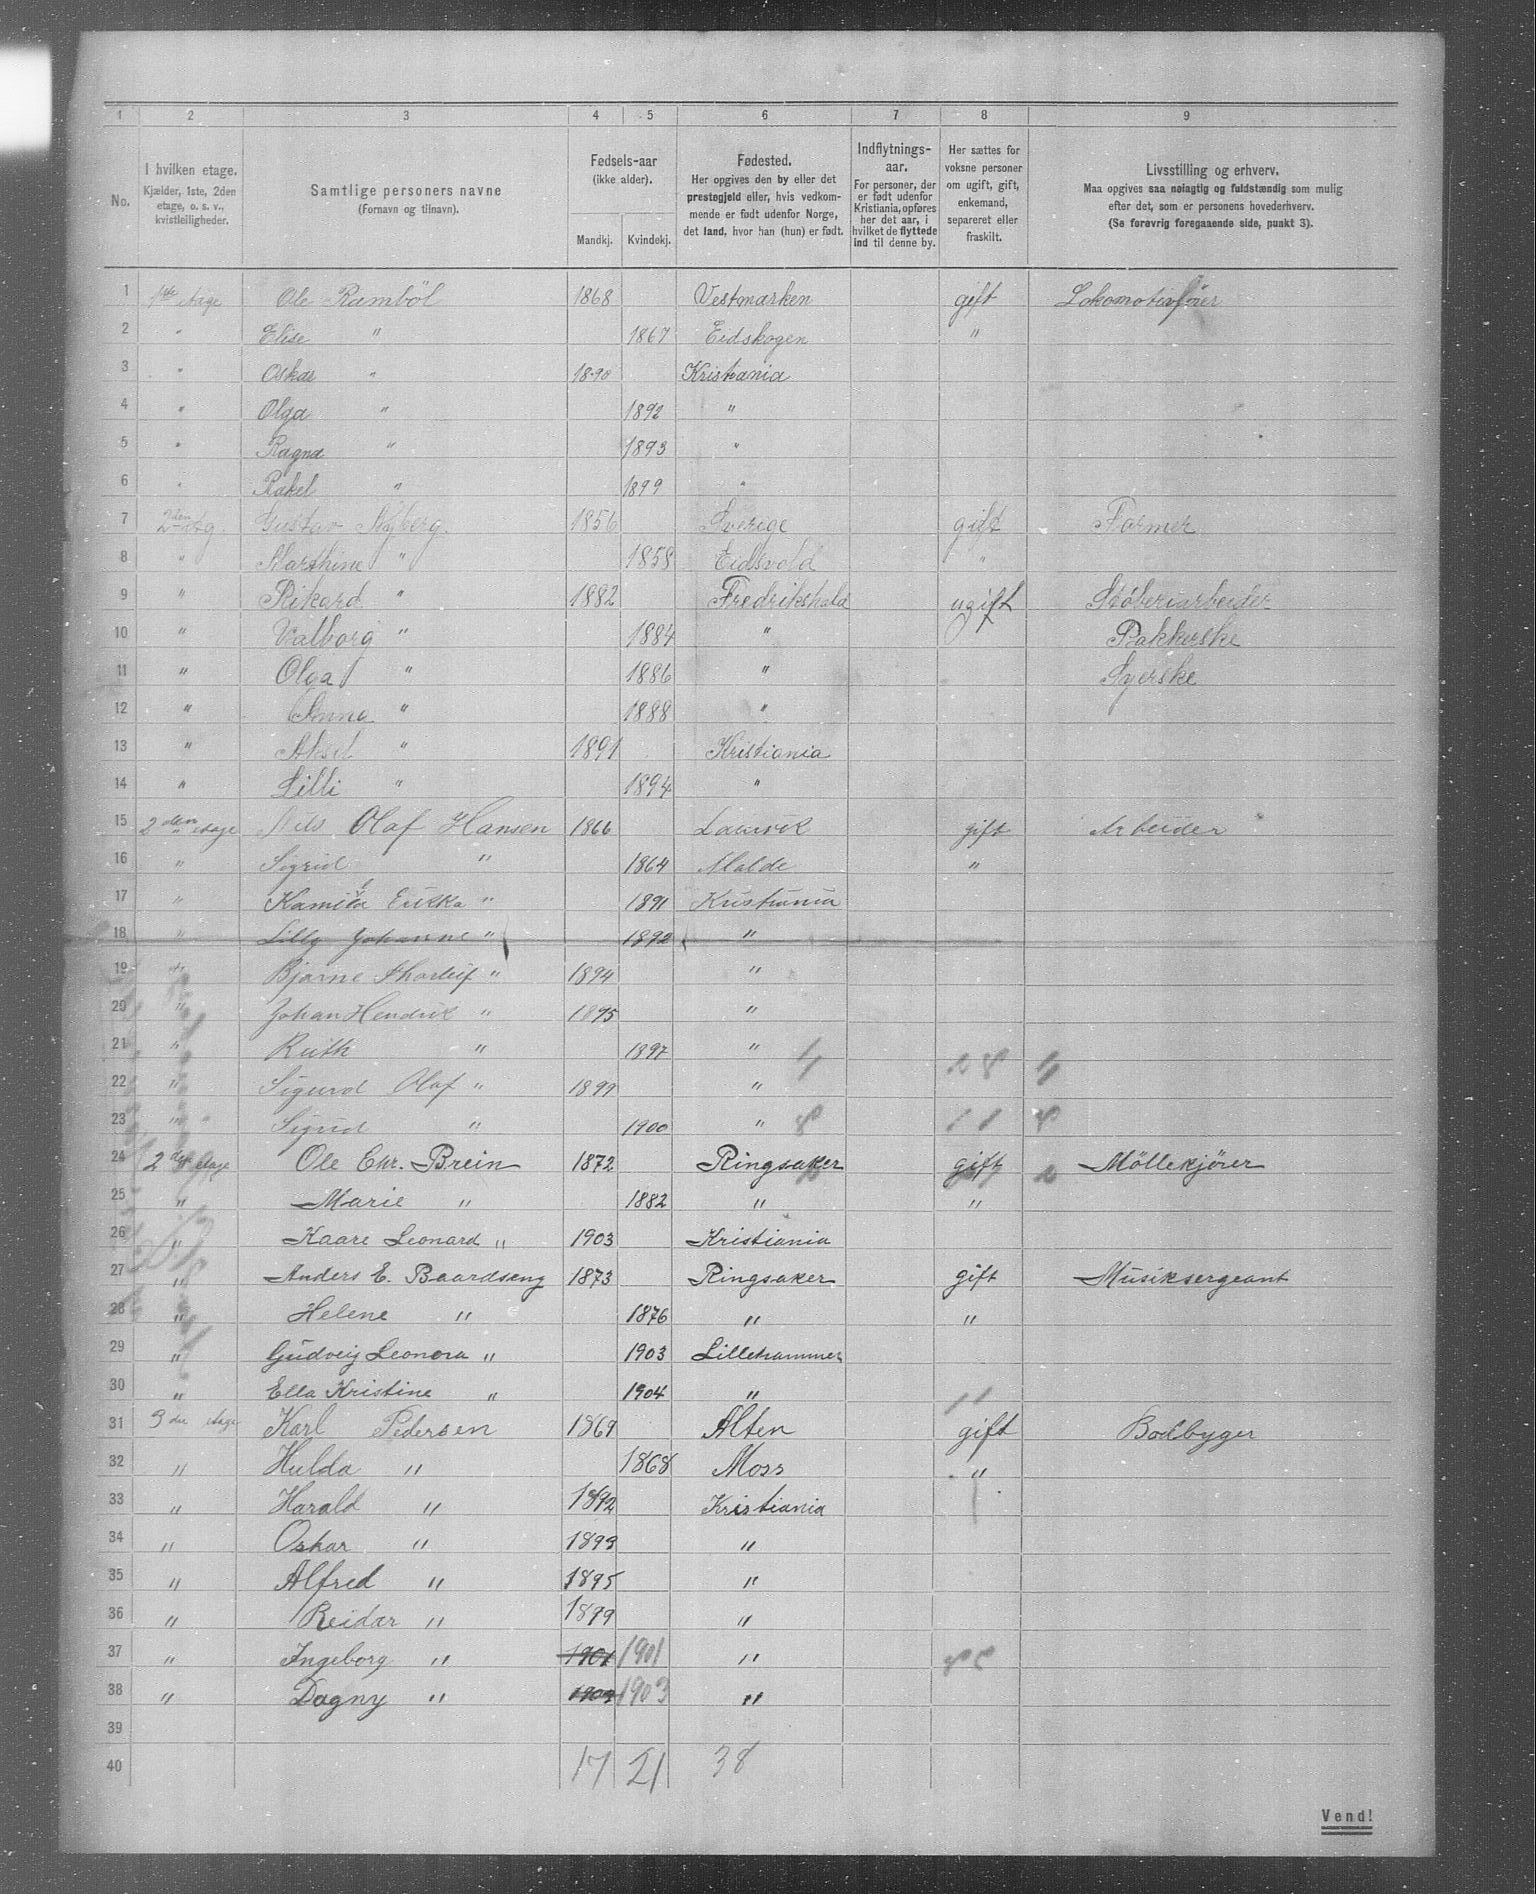 1 2 3 4 5 6 7 8 9
No. I hvilken etage. Kjælder, 1ste, 2den etage, o. s. v., kvistleiligheder. Samtlige personers navne (Fornavn og tilnavn). Fødsels-aar (ikke alder). Mandkj. Kvindekj. Fødested. Her opgives den by eller det prestegjeld eller, hvis vedkommende er født udenfor Norge, det land, hvor han (hun) er født. Indflytnings-aar. For personer, der er født udenfor Kristiania, opføres her det aar, i hvilket de flyttede ind til denne by. Her sættes for voksne personer om ugift, gift, enkemand, separeret eller fraskilt. Livsstilling og erhverv. Maa opgives saa nøiagtig og fuldstændig som mulig efter det, som er personens hovederhverv. (Se forøvrig foregaaende side, punkt 3).
1 1ste etage Ole Ramböl 1868 Vestmarken gift Lokomotivfører
2 " Elise " 1867 Eidskogen "
3 " Oskar " 1890 Kristiania
4 " Olga " 1892 "
5 " Ragna " 1893 "
6 " Rakel " 1899 "
7 2den etg. Gustav Nyberg. 1856 Sverige gift Former
8 " Marthine " 1858 Eidsvold "
9 " Rikard " 1882 Fredrikshald ugift Støberiarbeider
10 " Valborg " 1884 " Pakkerske
11 " Olga " 1886 " Syerske
12 " Anna " 1888 "
13 " Aksel " 1891 Kristiania
14 " Lilli " 1894 "
15 2den etage Nils Olaf Hansen 1866 Laurvik gift Arbeider
16 " Sigrid " 1864 Molde "
17 " Kamilla Erikka " 1891 Kristiania
18 " Lilly Johanne " 1892 "
19 " Bjarne Thorleif " 1894 "
20 " Johan Hendrik " 1895 "
21 " Ruth " 1897 "
22 " Sigurd Olaf " 1899 "
23 " Sigrid " 1900 "
24 2den etage Ole Chr. Brein 1872 Ringsaker gift Möllekjörer
25 " Marie " 1882 " "
26 " Kaare Leonard " 1903 Kristiania
27 " Anders E. Baardseng 1873 Ringsaker gift Musiksergeant
28 " Helene " 1876 " "
29 " Gudveig Leonora " 1903 Lillehammer
30 " Ella Kristine " 1904 "
31 3die etage Karl Pedersen 1869 Alten gift Bodbyger
32 " Hulda " 1868 Moss "
33 " Harald " 1892 Kristiania
34 " Oskar " 1893 "
35 " Alfred " 1895 "
36 " Reidar " 1899 "
37 " Ingeborg " 1901 1901 "
38 " Dagny " 1903 1903 "
39
40 17 21 38
Vend!